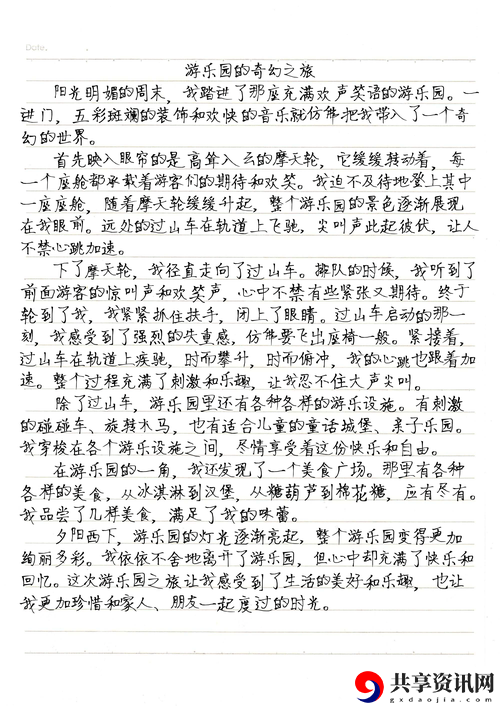 Date.
游乐园的奇幻之旅
阳光明媚的周末，我踏进了那座充满欢声笑语的游乐园。一
进门，五彩斑斓的装饰和欢快的音乐就仿佛把我带入了一个奇
幻的世界。
首先映入眼帘的是高耸入云的摩天轮，它缓缓转动着，每
一个座舱都承载着游客们的期待和欢笑。我迫不及待地登上其中
一座座舱，随着摩天轮缓缓升起，整个游乐园的景色逐渐展现
在我眼前。远处的过山车在轨道上飞驰，尖叫声此起彼伏，让人
不禁心跳加速。
下了摩天轮，我径直走向了过山车。排队的时候，我听到了
前面游客的惊叫声和欢笑声，心中不禁有些紧张又期待。终于
轮到了我，我紧紧抓住扶手，闭上了眼睛。过山车启动的那一
刻，我感受到了强烈的失重感，仿佛要飞出座椅一般。紧接着，
过山车在轨道上疾驰，时而攀升，时而俯冲，我的心跳也跟着加
速。整个过程充满了刺激和乐趣，让我忍不住大声尖叫。
除了过山车，游乐园里还有各种各样的游乐设施。有刺激
的碰碰车、旋转木马，也有适合儿童的童话城堡、亲子乐园。
我穿梭在各个游乐设施之间，尽情享受着这份快乐和自由。
在游乐园的一角，我还发现了一个美食广场。那里有各种
各样的美食，从冰淇淋到汉堡，从糖葫芦到棉花糖，应有尽有。
我品尝了几样美食，满足了我的味蕾。
夕阳西下，游乐园的灯光逐渐亮起，整个游乐园变得更加
绚丽多彩。我依依不舍地离开了游乐园，但心中却充满了快乐和
回忆。这次游乐园之旅让我感受到了生活的美好和乐趣，也让
我更加珍惜和家人、朋友一起度过的时光。
共享资讯网
gxdaojia.com